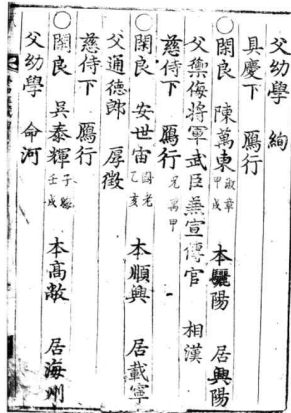 父幼學 絢
具慶下 鴈行
○閑良 陳萬東 叔章 甲戌 本驪陽 居興陽
父禦侮將軍武臣兼宣傳官 相漢
慈侍下 鴈行 兄萬甲
○閑良 安世宙 國老 乙亥 本順興 居載寧
父通德郎 厚徵
慈侍下 鴈行
○閑良 吳泰輝 子 壬戌 本高敞 居海州
父幼學 命河